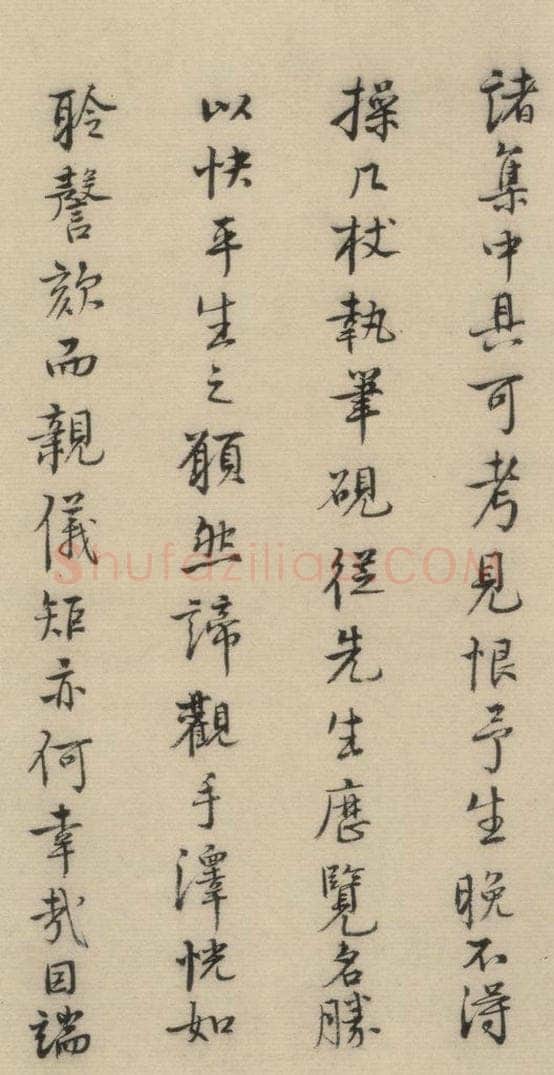 諸集中具可考見恨予生晚不得
操几杖執筆硯從先生歷覽名勝
以快平生之願然諦觀手澤恍如
聆謦欬而親儀矩亦何幸哉因端
shufaziliao.COM